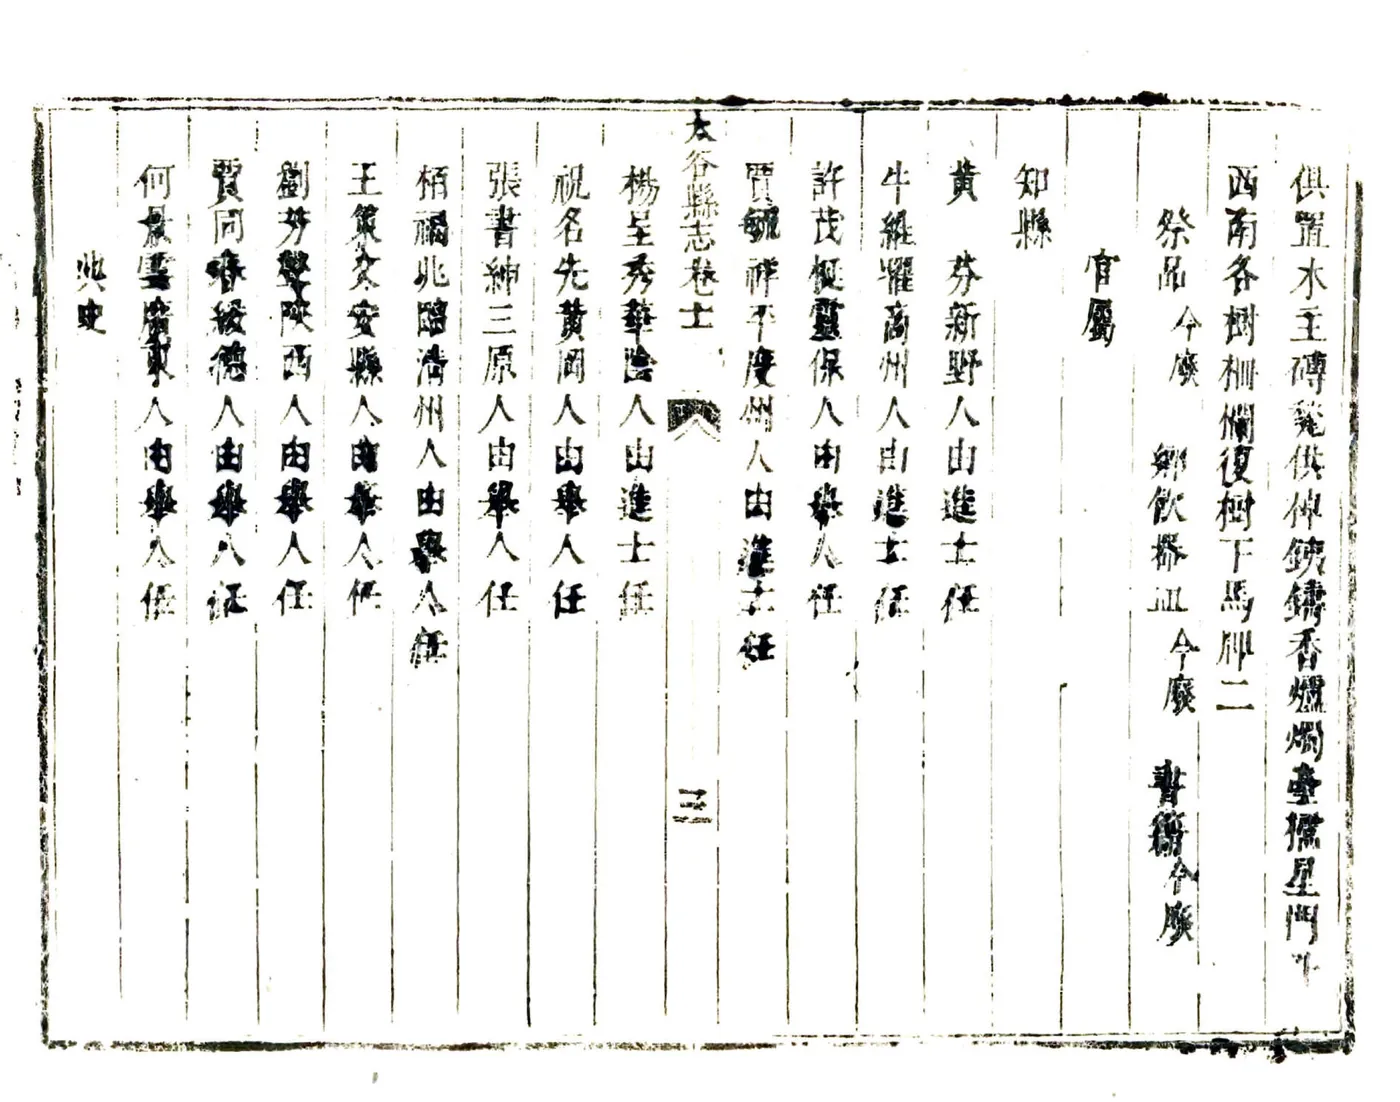 俱置水主磚龕供俾銕鑄香爐燭臺櫺星門外
西南各樹柵欄復樹下馬牌二
祭品 今廢 鄉飲器皿 今廢 書籍 今廢
官屬
知縣
黄 芬新野人由進士任
牛維 商州人由進士任
許茂 靈保人由舉人任
賈毓祥平度州人由進士任
太谷縣志卷十 三
楊呈秀華陰人由進士任
祝名先黄岡人由舉人任
張書紳三原人由舉人任
栢福兆臨清州人由舉人任
王策文安縣人由舉人任
劉芳聲陝西人由舉人任
賈同春綏德人由舉人任
何景雲廣東人由舉人任
典史